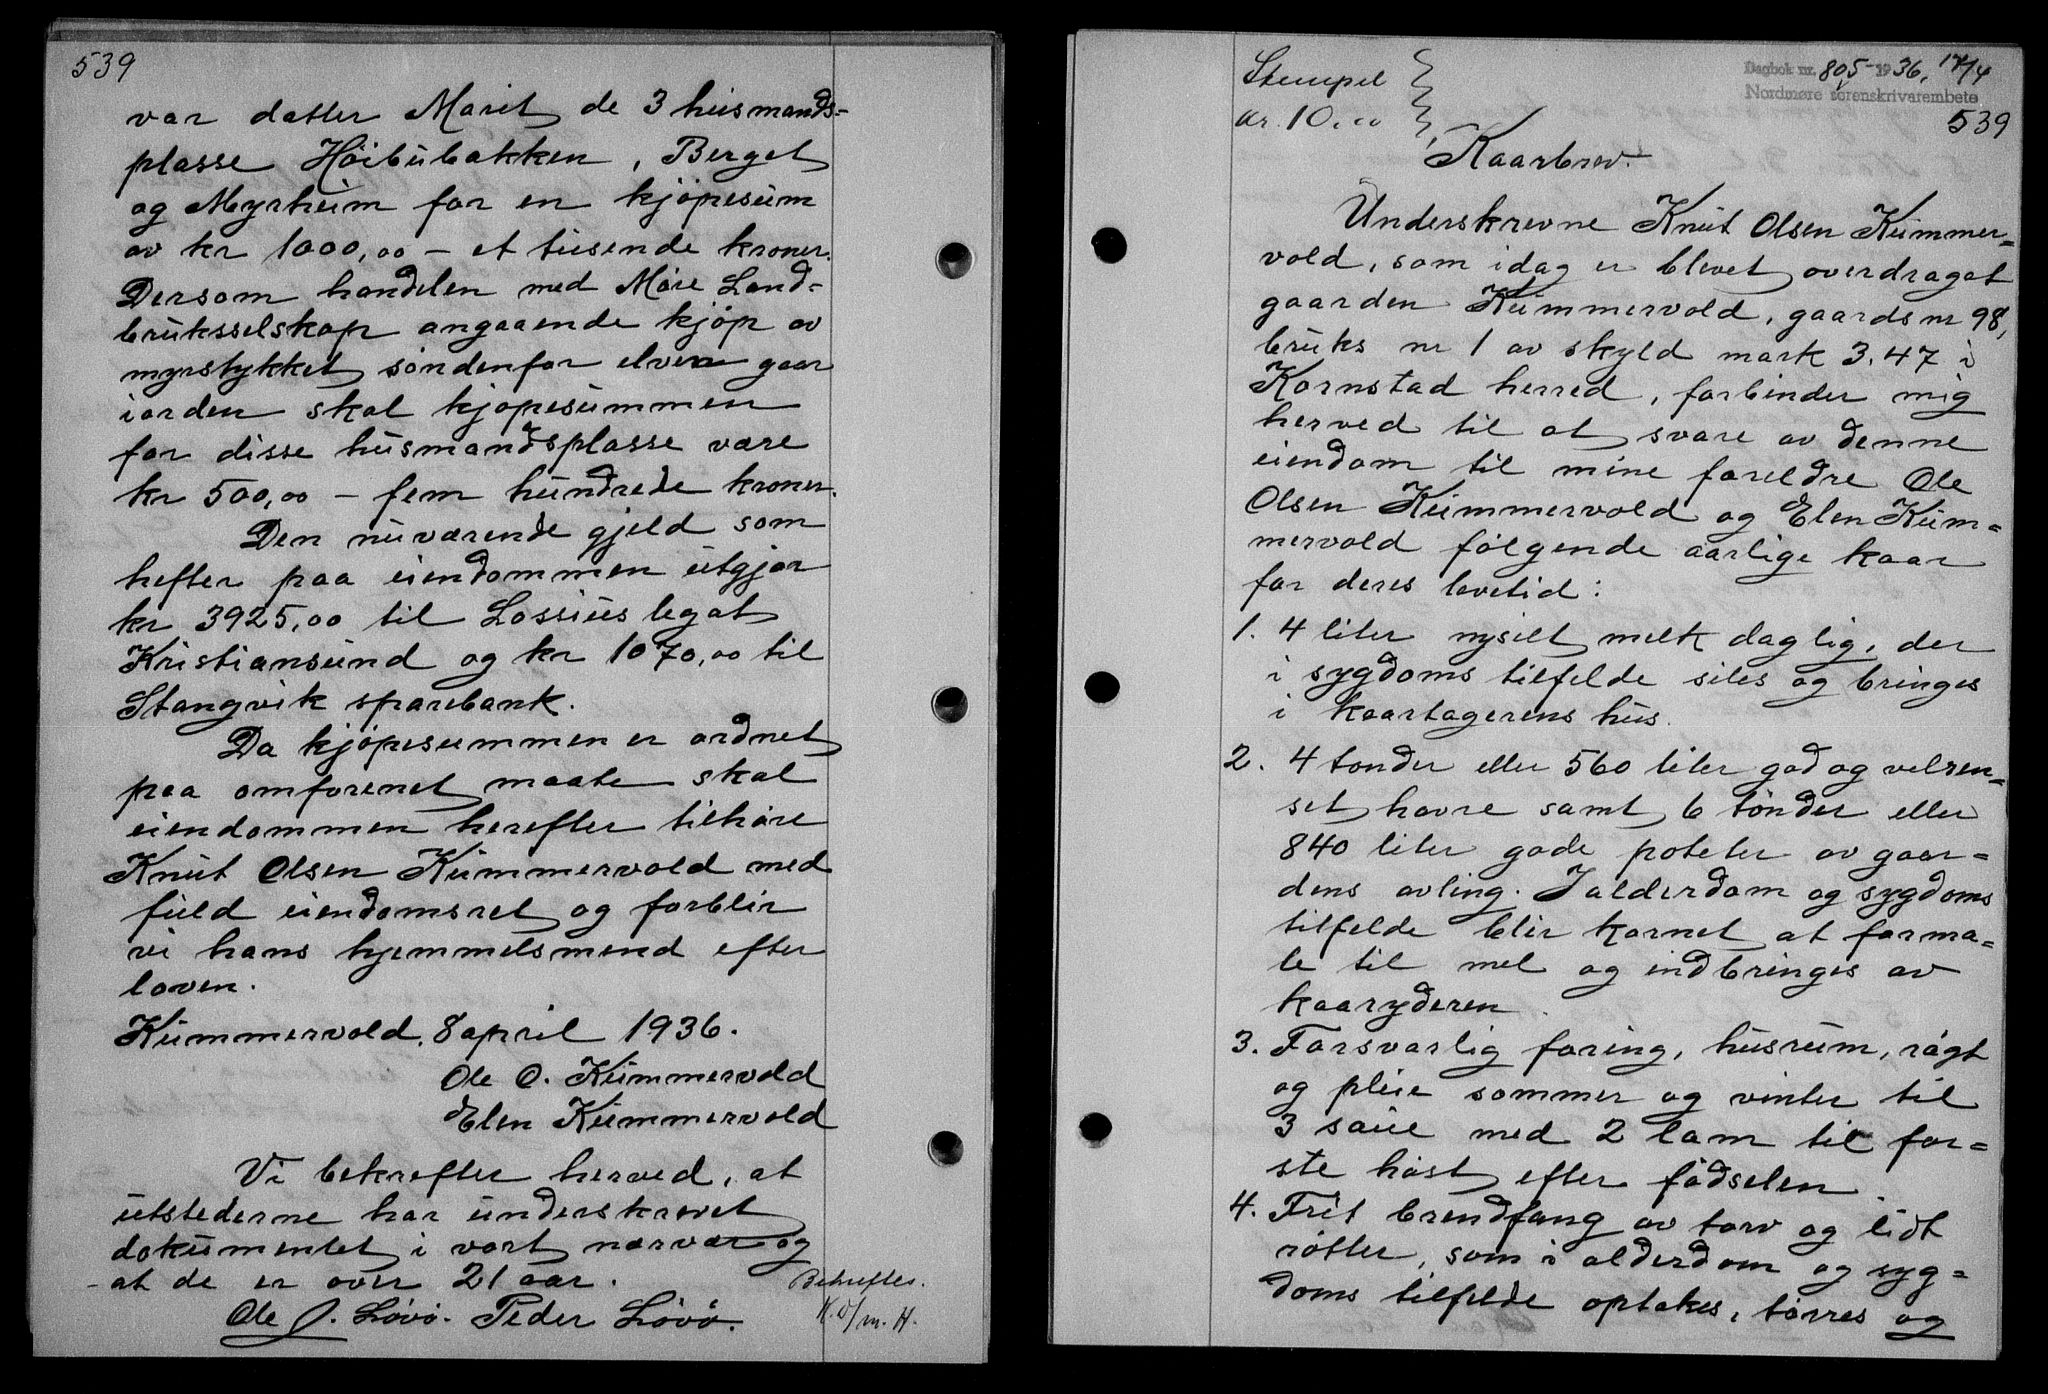 539
var datter Marit de 3 husmands=
plasse Höibubakken, Berget
og Myrheim for en kjöpesum
av kr 1000,00 – et tusende kroner.
Dersom handelen med Möre Land=
bruksselskap angaaende kjöp av
myrstykket söndenfor elven gaar
i orden skal kjöpesummen
for disse husmandsplasse være
kr 500,00 – fem hundrede kroner.
Den nuværende gjeld som
hefter paa eiendommen utgjör
kr 3925,00 til Lossius legat
Kristiansund og kr 1070,00 til
Stangvik sparebank.
Da kjöpesummen er ordnet
paa omforenet maate skal
eiendommen herefter tilhöre
Knut Olsen Kummervold med
fuld eiendomsret og forblir
vi hans hjemmelsmend efter
loven.
Kummervold, 8 april 1936.
Ole O. Kummervold
Elen Kummervold
Vi bekrefter herved, at
utstederne har underskrevet
dokumentet i vort nærvær og
- at de er over 21 aar.
Ole J. Lövö. Peder Lövö.
Bekreftes.
Stempel
kr. 10.00
Dagbok nr. 805 - 1936, 17/4
Nordmøre sorenskrivarembete
539
Kaarbrev.
Underskrevne Knut Olsen Kummer=
vold, som idag er blevet overdraget
gaarden Kummervold, gaards nr 98,
bruks nr 1 av skyld mark 3.47 i
Kornstad herred, forbinder mig
herved til at svare av denne
eiendom til mine foreldre Ole
Olsen Kummervold og Elen Kum=
mervold fölgende aarlige kaar
for deres levetid:
1. 4 liter nysilt melk daglig, der
i sygdoms tilfelde siles og bringes
i kaartagerens hus.
2. 4 tönder eller 560 liter god og velren=
set havre samt 6 tönder eller
840 liter gode poteter av gaar=
dens avling. I alderdom og sygdoms
tilfelde blir kornet at forma=
le til mel og indbringes av
kaaryderen.
3. Forsvarlig foring, husrum, rögt
og pleie sommer og vinter til
3 saue med 2 lam til för=
ste höst efter födselen.
4. Frit brendfang av torv og lidt
rötter, som i alderdom og syg=
doms tilfelde optakes, törres og